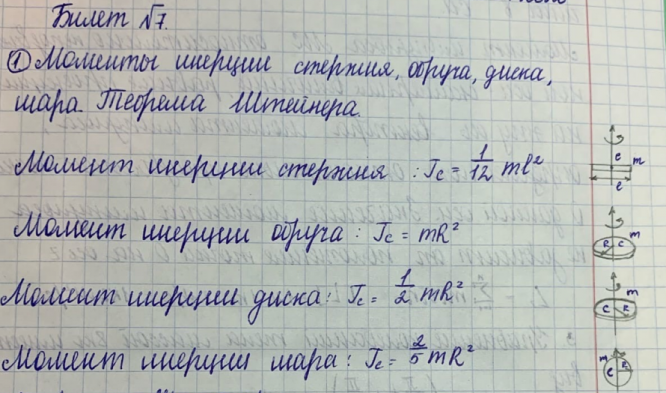 Билет №7.
① Моменты инерции стержня, обруча, диска,
шара. Теорема Штейнера.
Момент инерции стержня : Jc = 1/12 ml²
Момент инерции обруча : Jc = mR²
Момент инерции диска : Jc = 1/2 mR²
Момент инерции шара : Jc = 2/5 mR²
c m
l
R C m
C R m
m C R